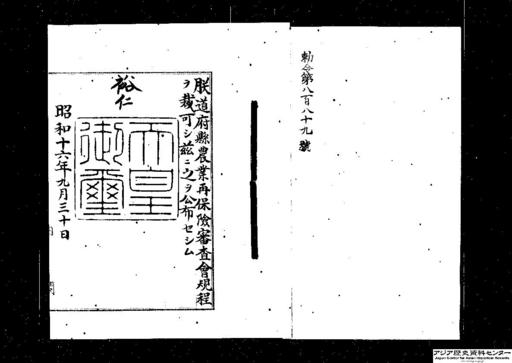 勅令第八百八十九號
朕道府縣農業再保險審査會規程
ヲ裁可シ茲ニ之ヲ公布セシム
裕仁
天皇
御璽
昭和十六年九月三十日
アジア歴史資料センター
Japan Center for Asian Historical Records